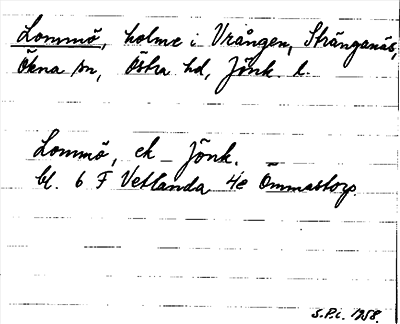 Lommö, holme i Vrången, Stränganäs,
Ökna sn, Östra hd, Jönk. l.
Lommö, ek – Jönk.
bl. 6 F Vetlanda 4e Ömmastorp.
S.P.i. 1958.